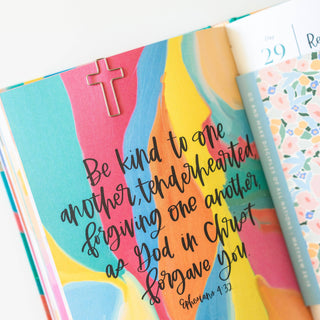 Be kind to one
another, tenderhearted,
forgiving one another,
as God in Christ
forgave you.
Ephesians 4:32
Day
29
Re